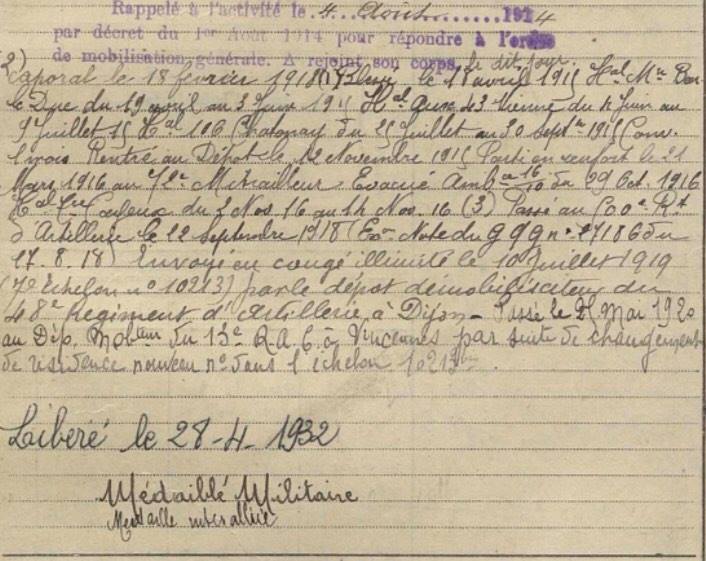 Rappelé à l'activité le 4 Août 1914
par décret du 1er Août 1914 pour répondre à l'ordre
de mobilisation générale. A rejoint son corps, le dit jour.
2) Caporal le 18 février 1918 (1) le 11 avril 1915 Hal Mre Bar
le Duc du 19 avril au 3 Juin 1915 Hal aux 43 Vienne du 4 Juin au
9 Juillet 15 Hal 106 Chatonay du 25 Juillet au 30 Septre 1915 Conv.
1 mois Rentré au Dépôt le 12 Novembre 1915 Parti en renfort le 21
Mars 1916 au 72e Mitrailleur Evacué Ambce 16/10 du 29 Oct. 1916
Hal du 2 Nov. 16 au 14 Nov. 16 (3) Passé au 500e Rt
d'Artillerie le 12 septembre 1918 (Exon Note du G Q G n° 27186 du
27.8.18) Envoyé en congé illimité le 10 Juillet 1919
(7e Echelon n° 10213) par le dépôt démobilisateur du
48e Régiment d'Artillerie, à Dijon - Passé le 21 Mai 1920
au Dép. Mobteur du 13e R.A.C. à Vincennes par suite de changement
de résidence nouveau n° dans l'échelon 10213bis
Libéré le 28-4-1932
Médaillé Militaire
Médaille interalliée